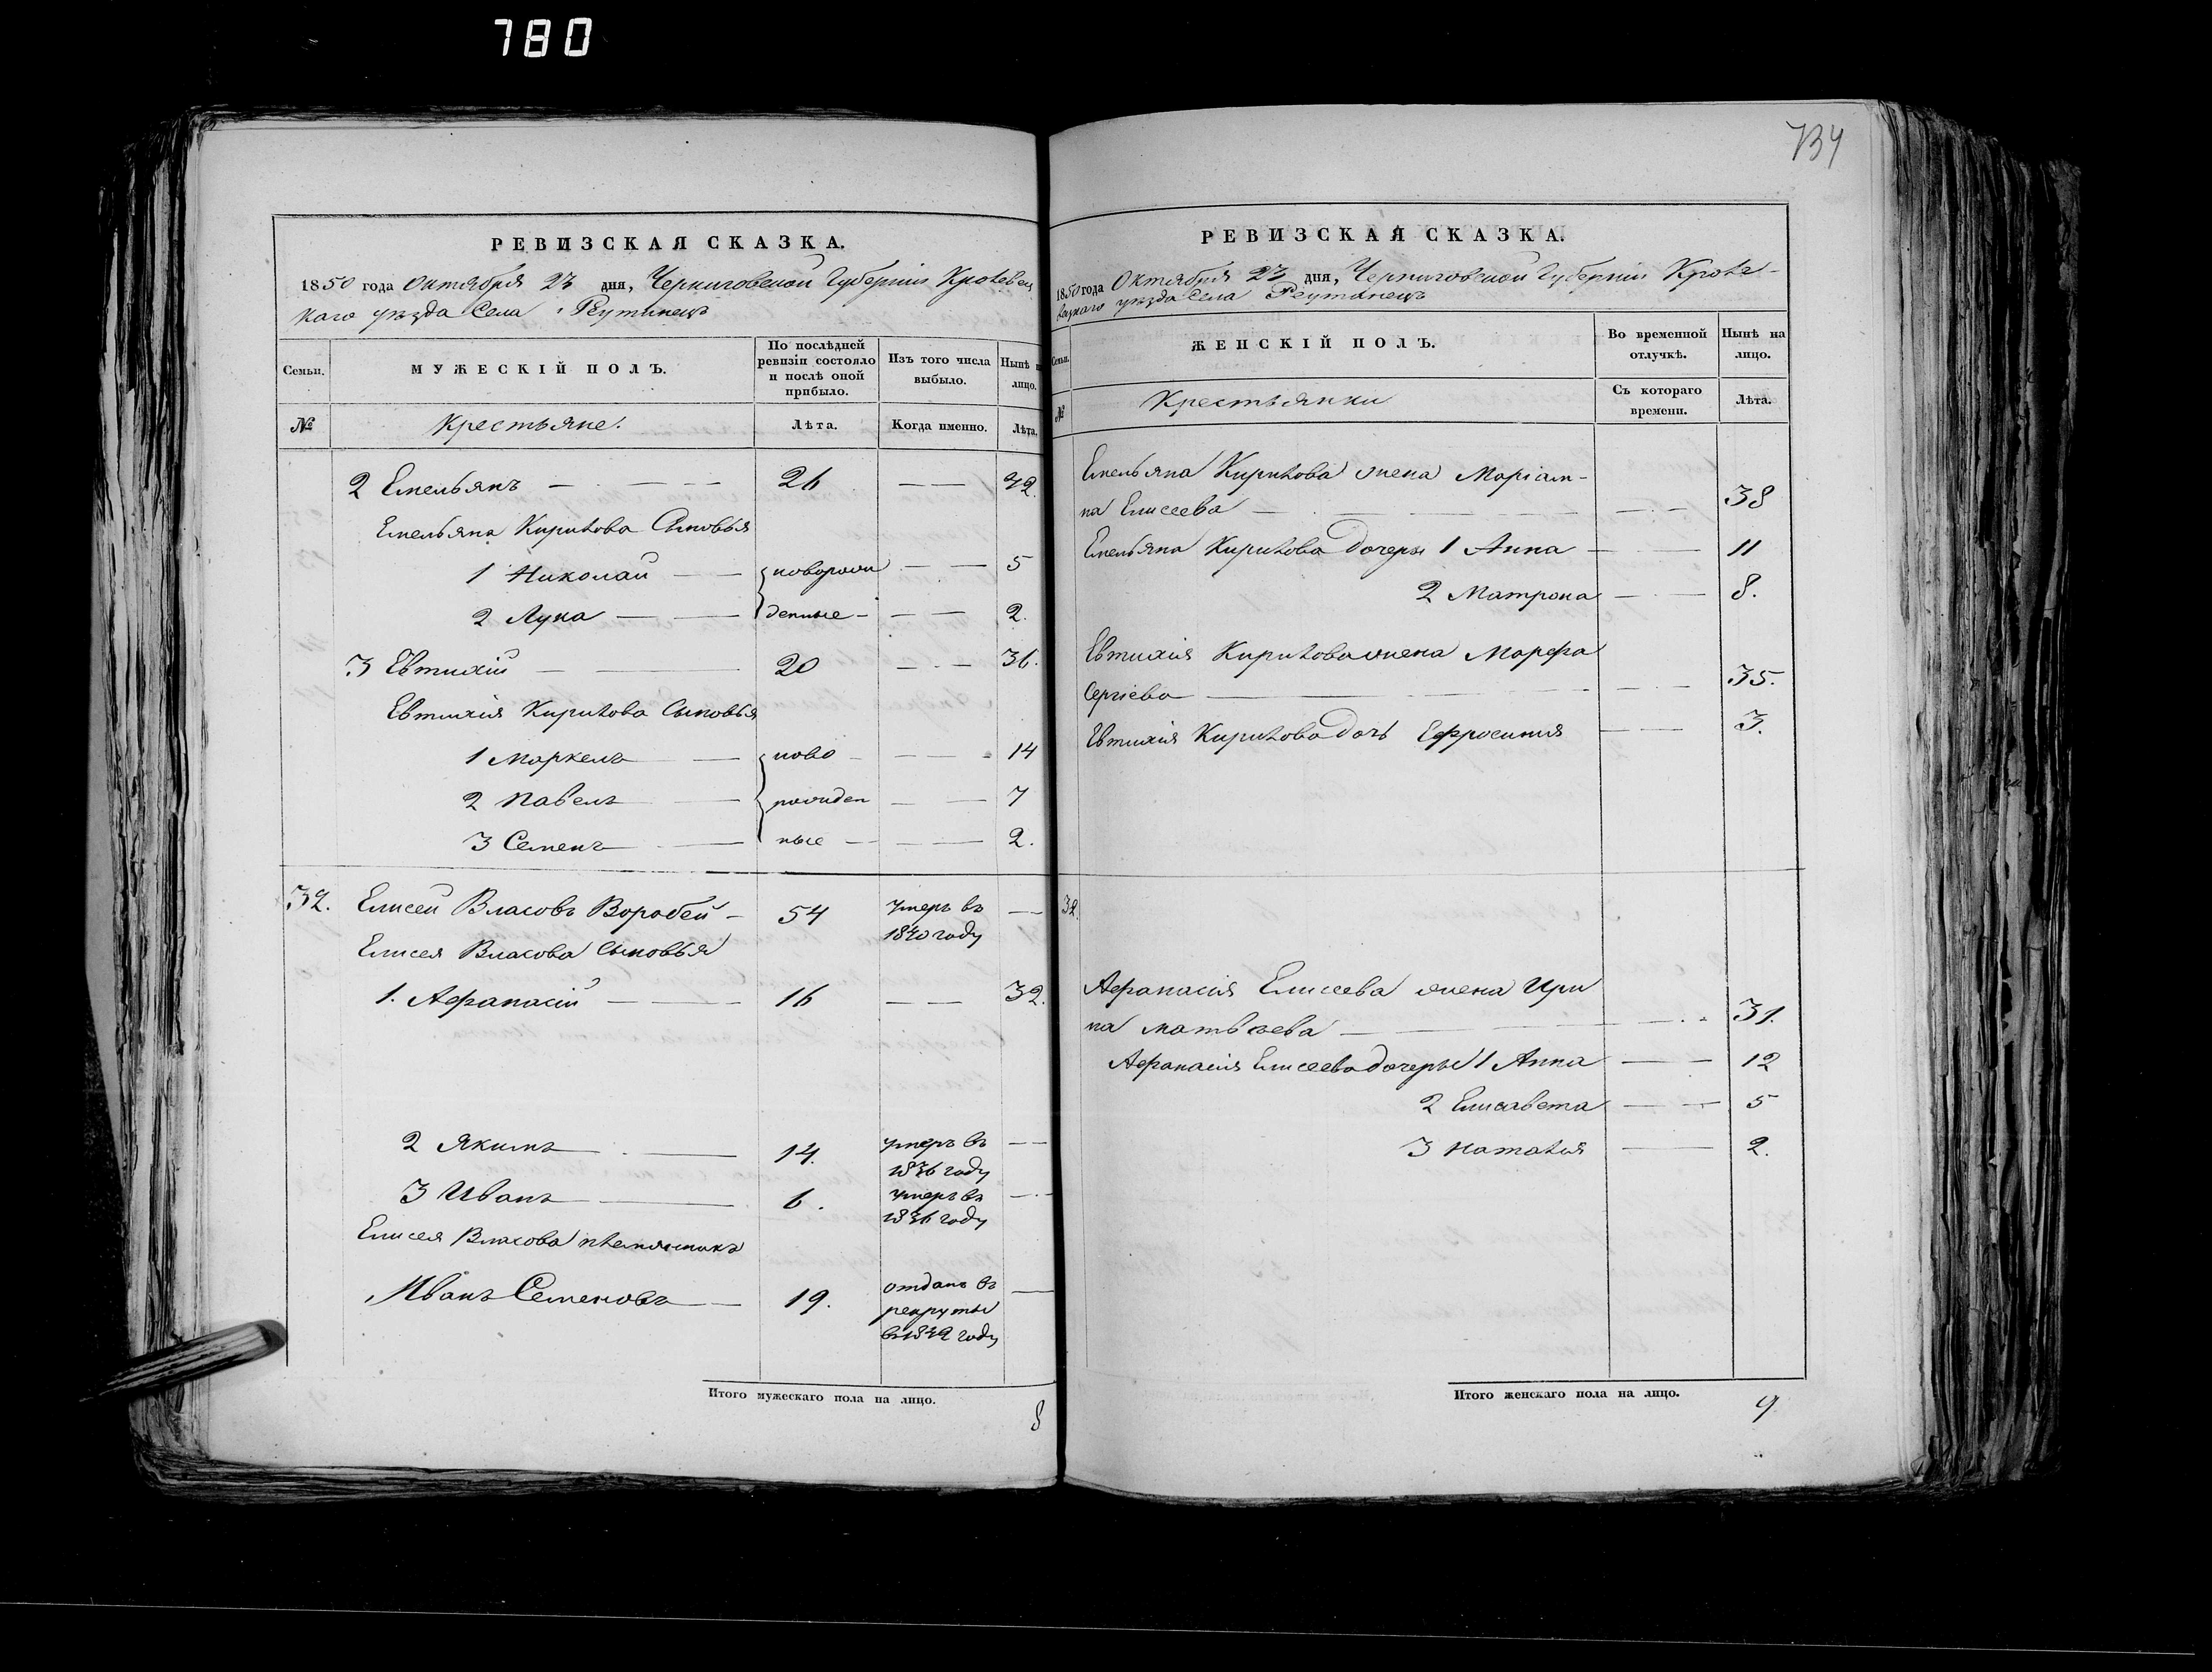 780
734
РЕВИЗСКАЯ СКАЗКА.
1850 года Октября 23 дня, Черниговской Губерніи Кролевец
каго уѣзда Села Реутинецъ
Семьи. МУЖЕСКІЙ ПОЛЪ. По послѣдней ревизіи состояло и послѣ оной прибыло. Изъ того числа выбыло. Нынѣ на лицо.
№ Крестьяне. Лѣта. Когда именно. Лѣта.
2 Емельянъ 26 42.
Емельяна Кирилова Сыновья
1 Николай новорож 5
2 Лука денные 2.
3 Евтихій 20 36.
Евтихія Кирилова Сыновья
1 Маркелъ ново 14
2 Павелъ рожден 7
3 Семенъ ные 2.
32. Елисей Власовъ Воробей 54 умеръ въ
1840 году
Елисея Власова Сыновья
1. Афанасій 16 32.
2 Якимъ 14. умеръ въ
1836 году
3 Иванъ 6. умеръ въ
1836 году
Елисея Власова племянникъ
Иванъ Семеновъ 19. отданъ въ
рекруты
въ 1842 году
Итого мужескаго пола на лицо.
8
РЕВИЗСКАЯ СКАЗКА.
1850 года Октября 23 дня, Черниговской Губерніи Кроле-
вецкаго уѣзда Села Реутинецъ
Семьи. ЖЕНСКІЙ ПОЛЪ. Во временной отлучкѣ. Нынѣ на лицо.
№ Крестьянки Съ котораго времени. Лѣта.
Емельяна Кирилова жена Маріам-
на Елисеева 38
Емельяна Кирилова дочеры 1 Анна 11
2 Матрона 8.
Евтихія Кирилова жена Марфа
Сергіева 35.
Евтихія Кирилова дочь Ефросинія 3.
32.
Афанасія Елисеева жена Ири
на Матвѣева 31.
Афанасія Елисеева дочеры 1 Анна 12
2 Елисавета 5
3 Наталія 2.
Итого женскаго пола на лицо.
9